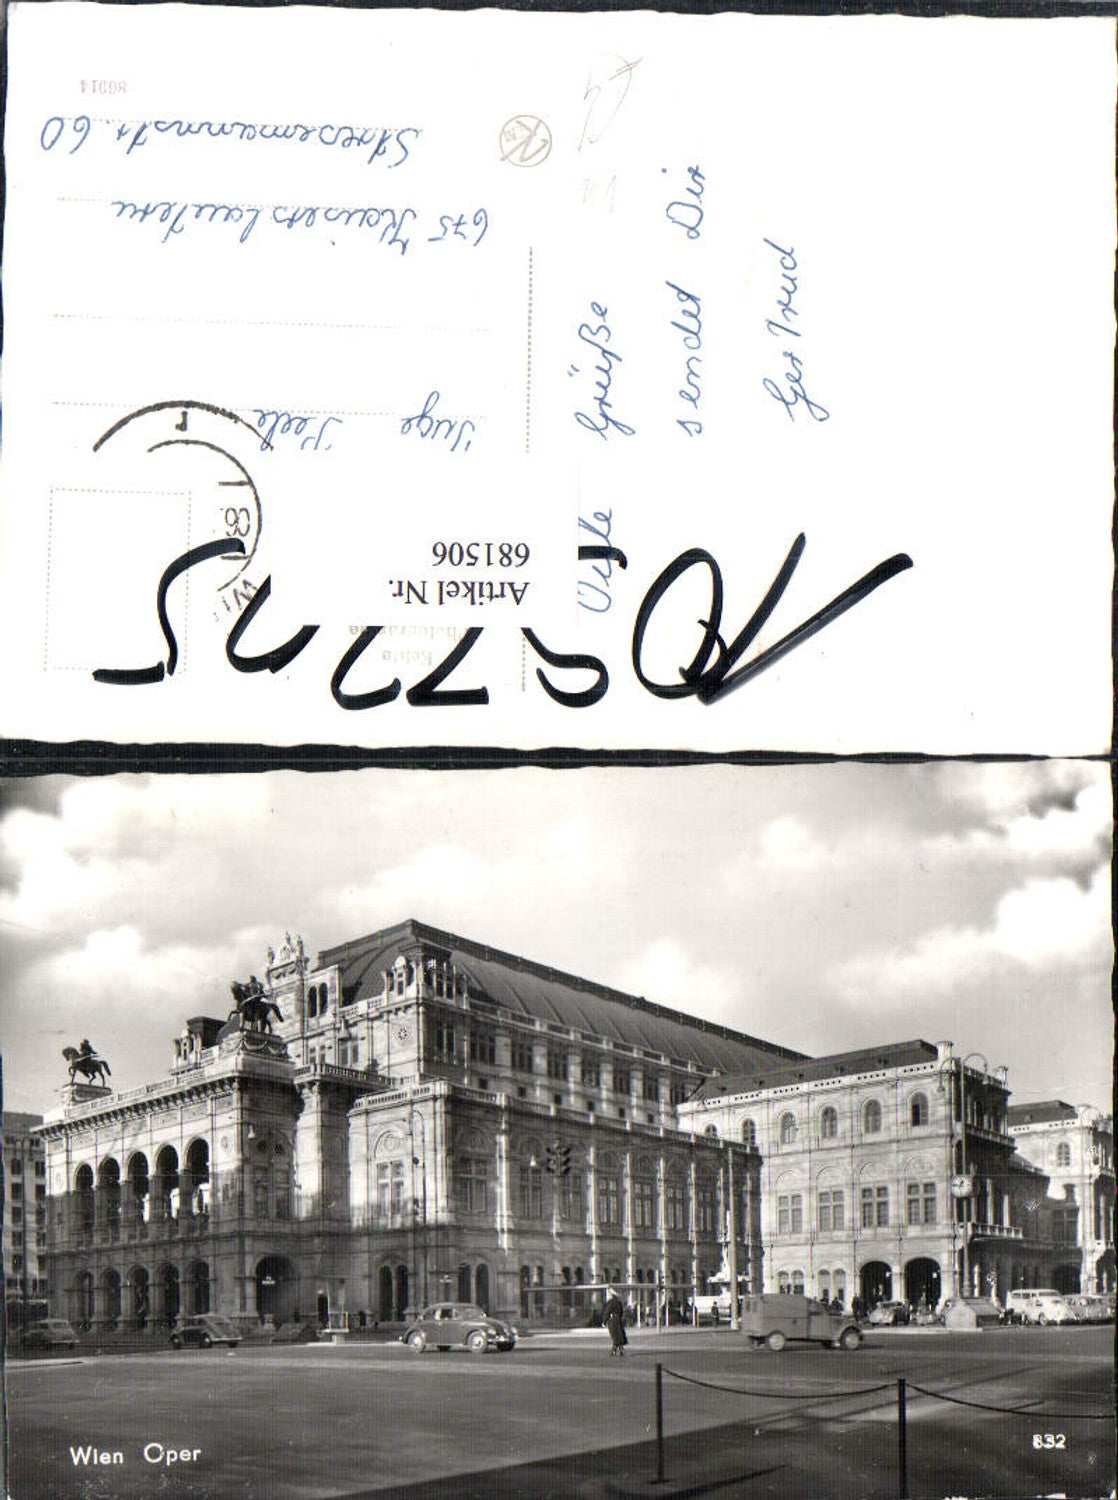 Viele Grüße
sendet Dir
Gertrud
Artikel Nr.
681506
Echte
Photographie
Inge
675 Kaiserslautern
Stresemannstr. 60
80014
Wien Oper
832